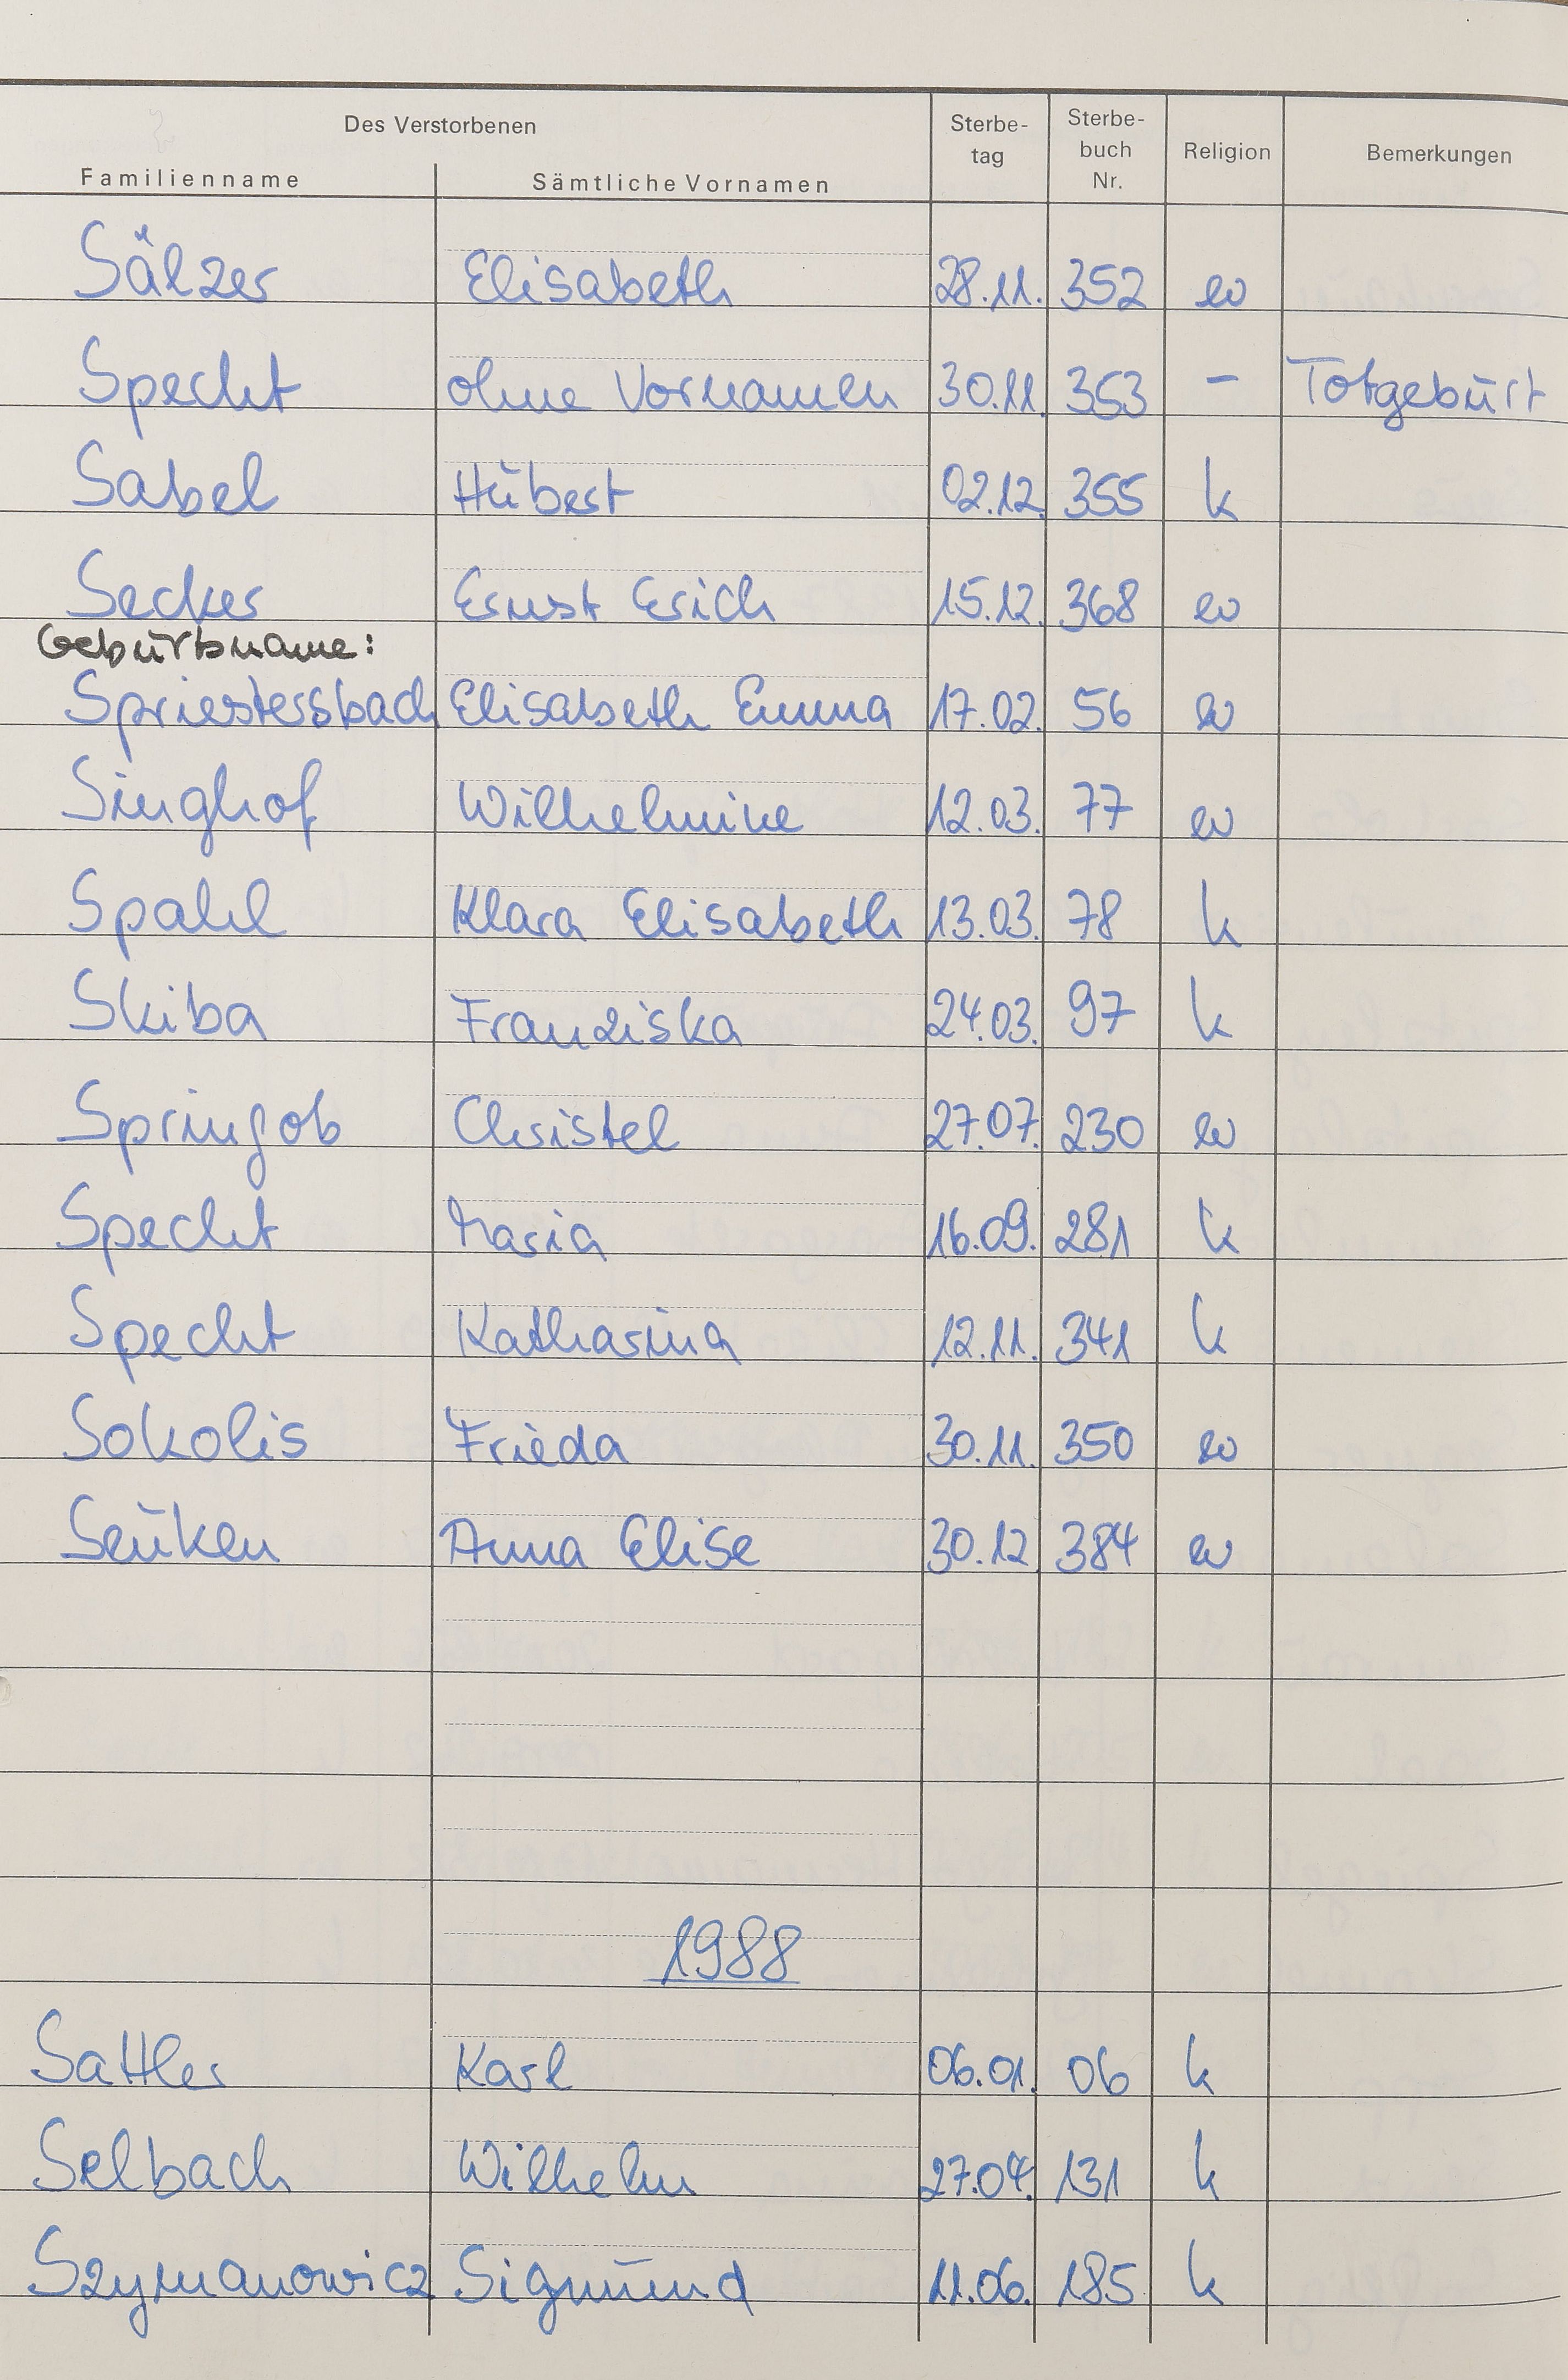 Des Verstorbenen
Familienname Sämtliche Vornamen Sterbe-tag Sterbe-buch Nr. Religion Bemerkungen
Sälzer Elisabeth 28.11. 352 ev
Specht ohne Vornamen 30.11. 353 - Totgeburt
Sabel Hubert 02.12. 355 k
Secker Ernst Erich 15.12. 368 ev
Geburtsname:
Spriestersbach Elisabeth Emma 17.02. 56 ev
Singhof Wilhelmine 12.03. 77 ev
Spahl Klara Elisabeth 13.03. 78 k
Skiba Franziska 24.03. 97 k
Springob Christel 27.07. 230 ev
Specht Maria 16.09. 281 k
Specht Katharina 12.11. 341 k
Sokolis Frieda 30.11. 350 ev
Seuken Anna Elise 30.12 384 ev
1988
Sattler Karl 06.01. 06 k
Selbach Wilhelm 27.04. 131 k
Szymanowicz Sigmund 11.06. 185 k